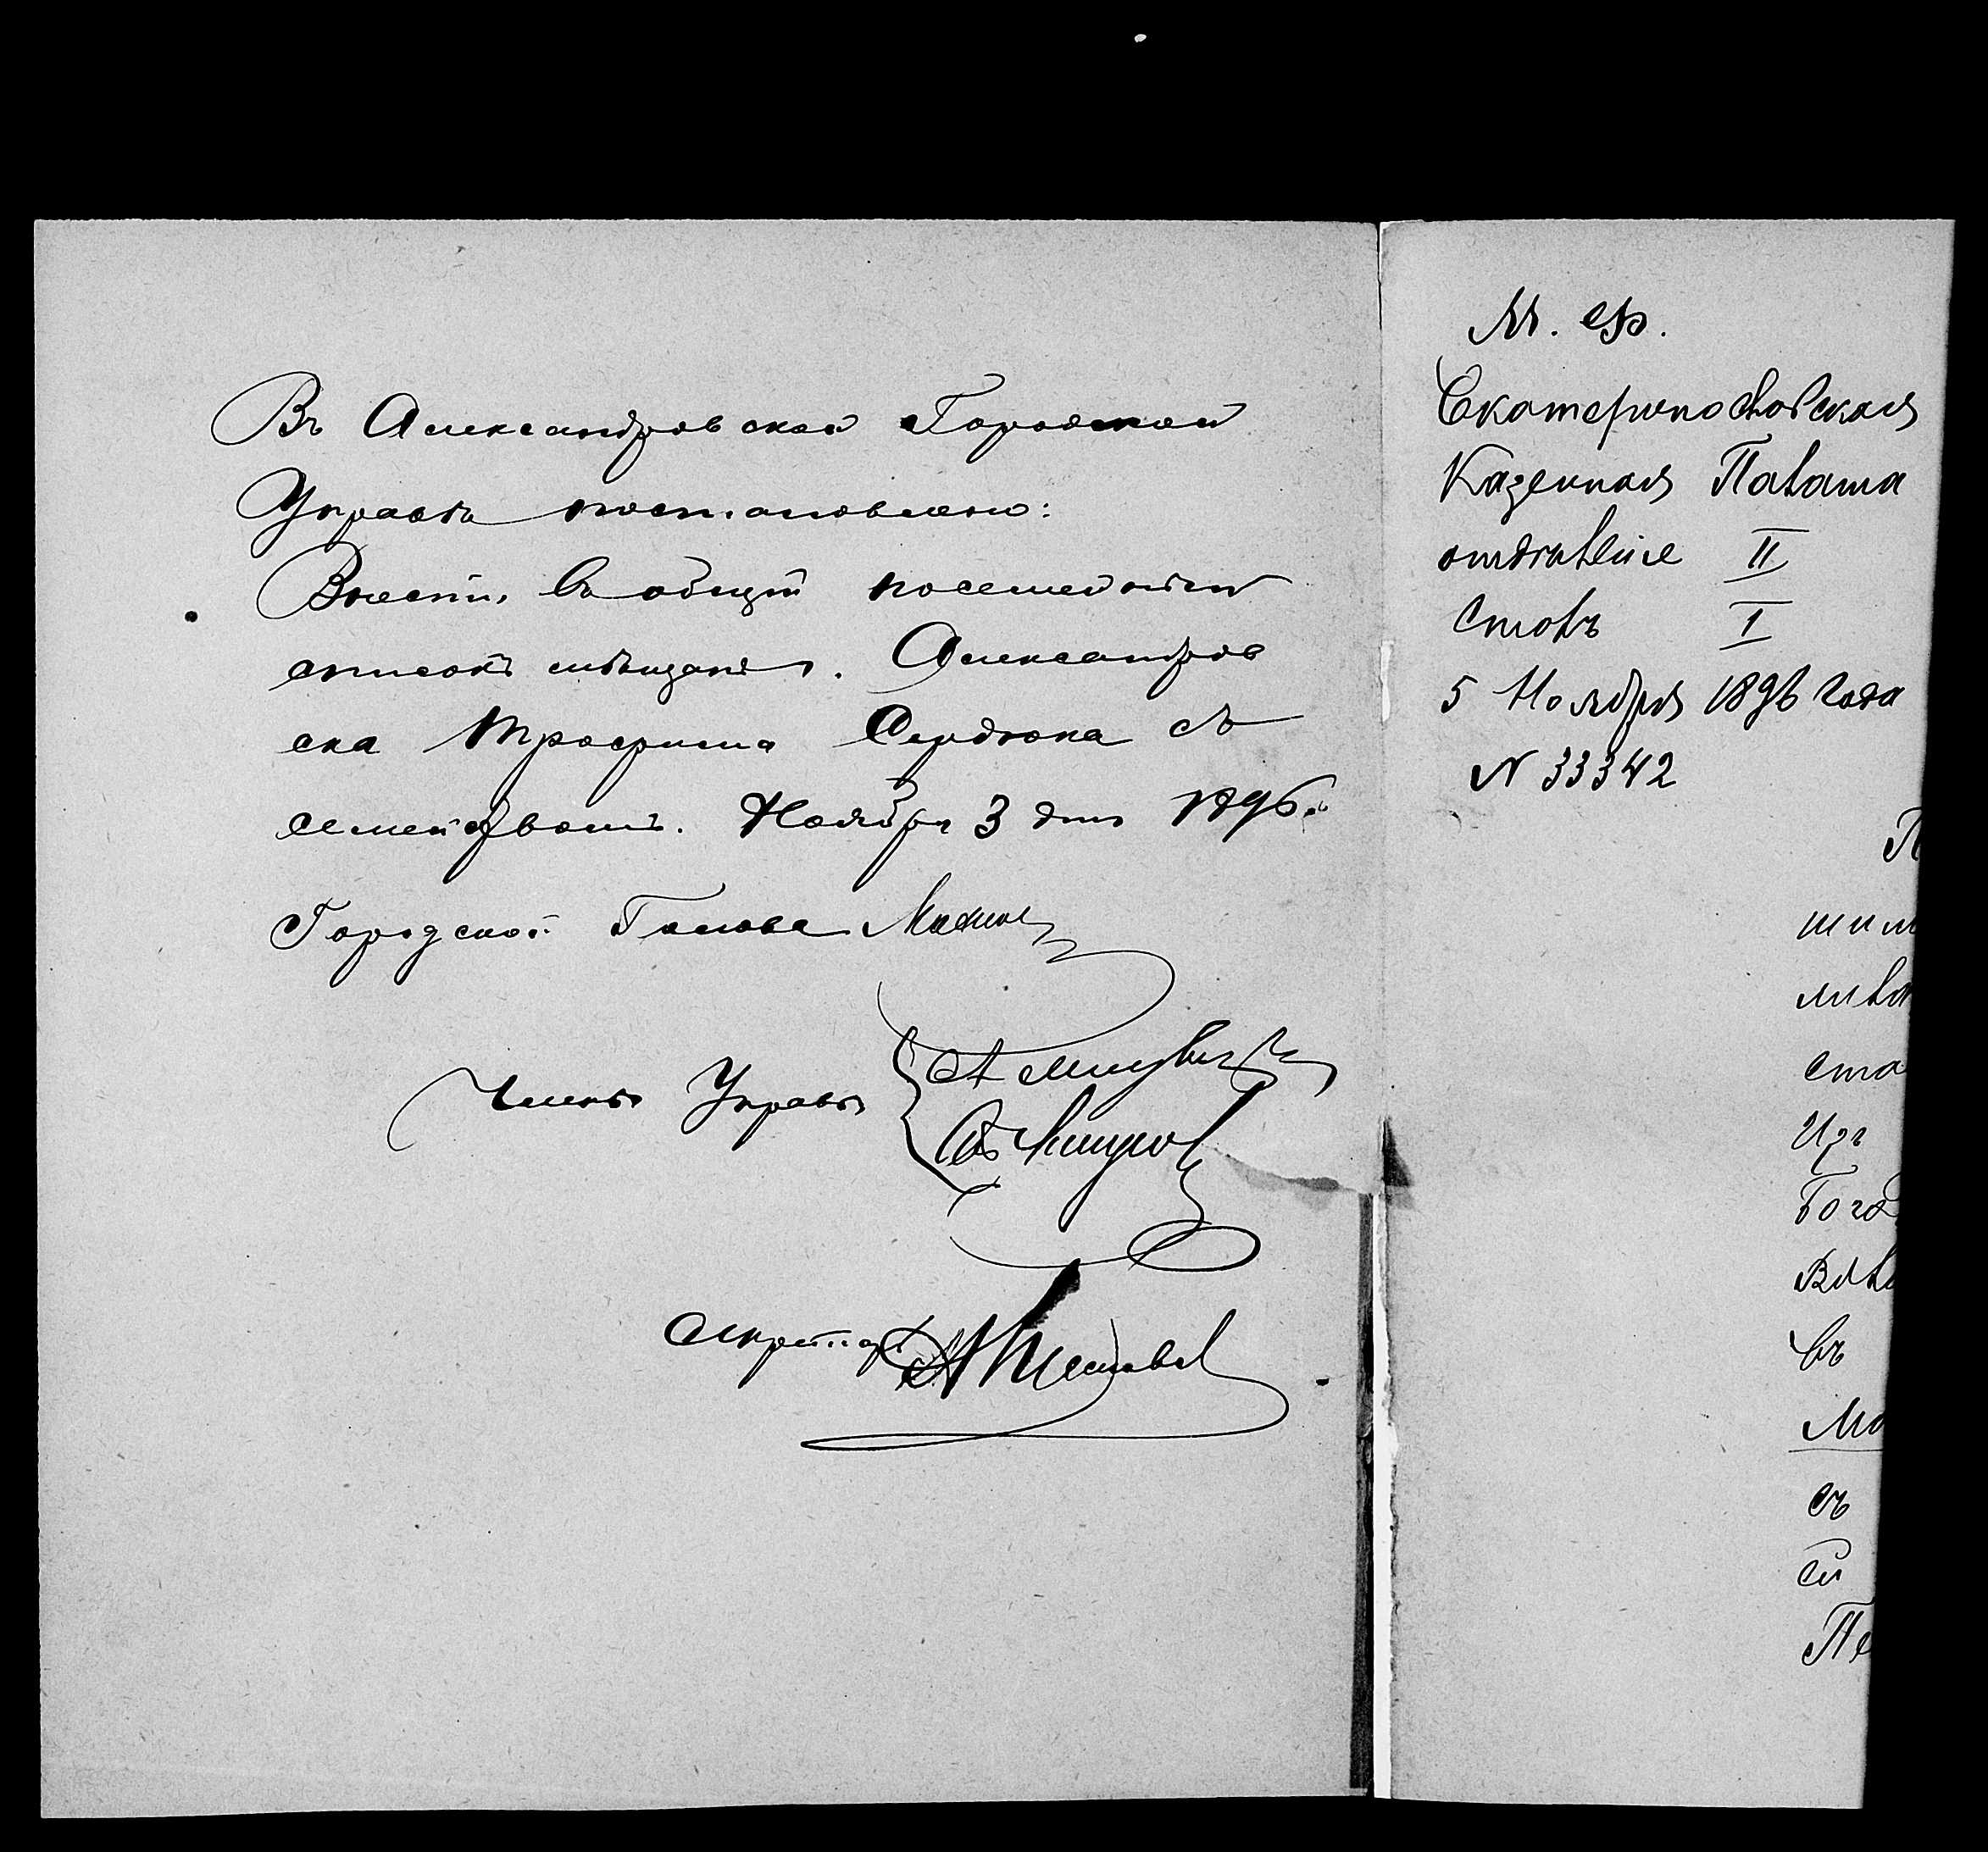 Въ Александровской Городской
Управѣ постановлено:
Внести въ общій посемейный
списокъ мѣщанъ г. Александров
ска Трофима Сердюка съ
семействомъ. Ноября 3 дня 1896 г.
Городской Голова
Члены Управы
Секретарь
М. Ф.
Екатеринославская
Казенная Палата
отдѣленіе II
Столъ I
5 Ноября 1896 года
N 33342
П
шим
лива
ста
Изъ
Богд
Въ
Ма
съ
си
Пе